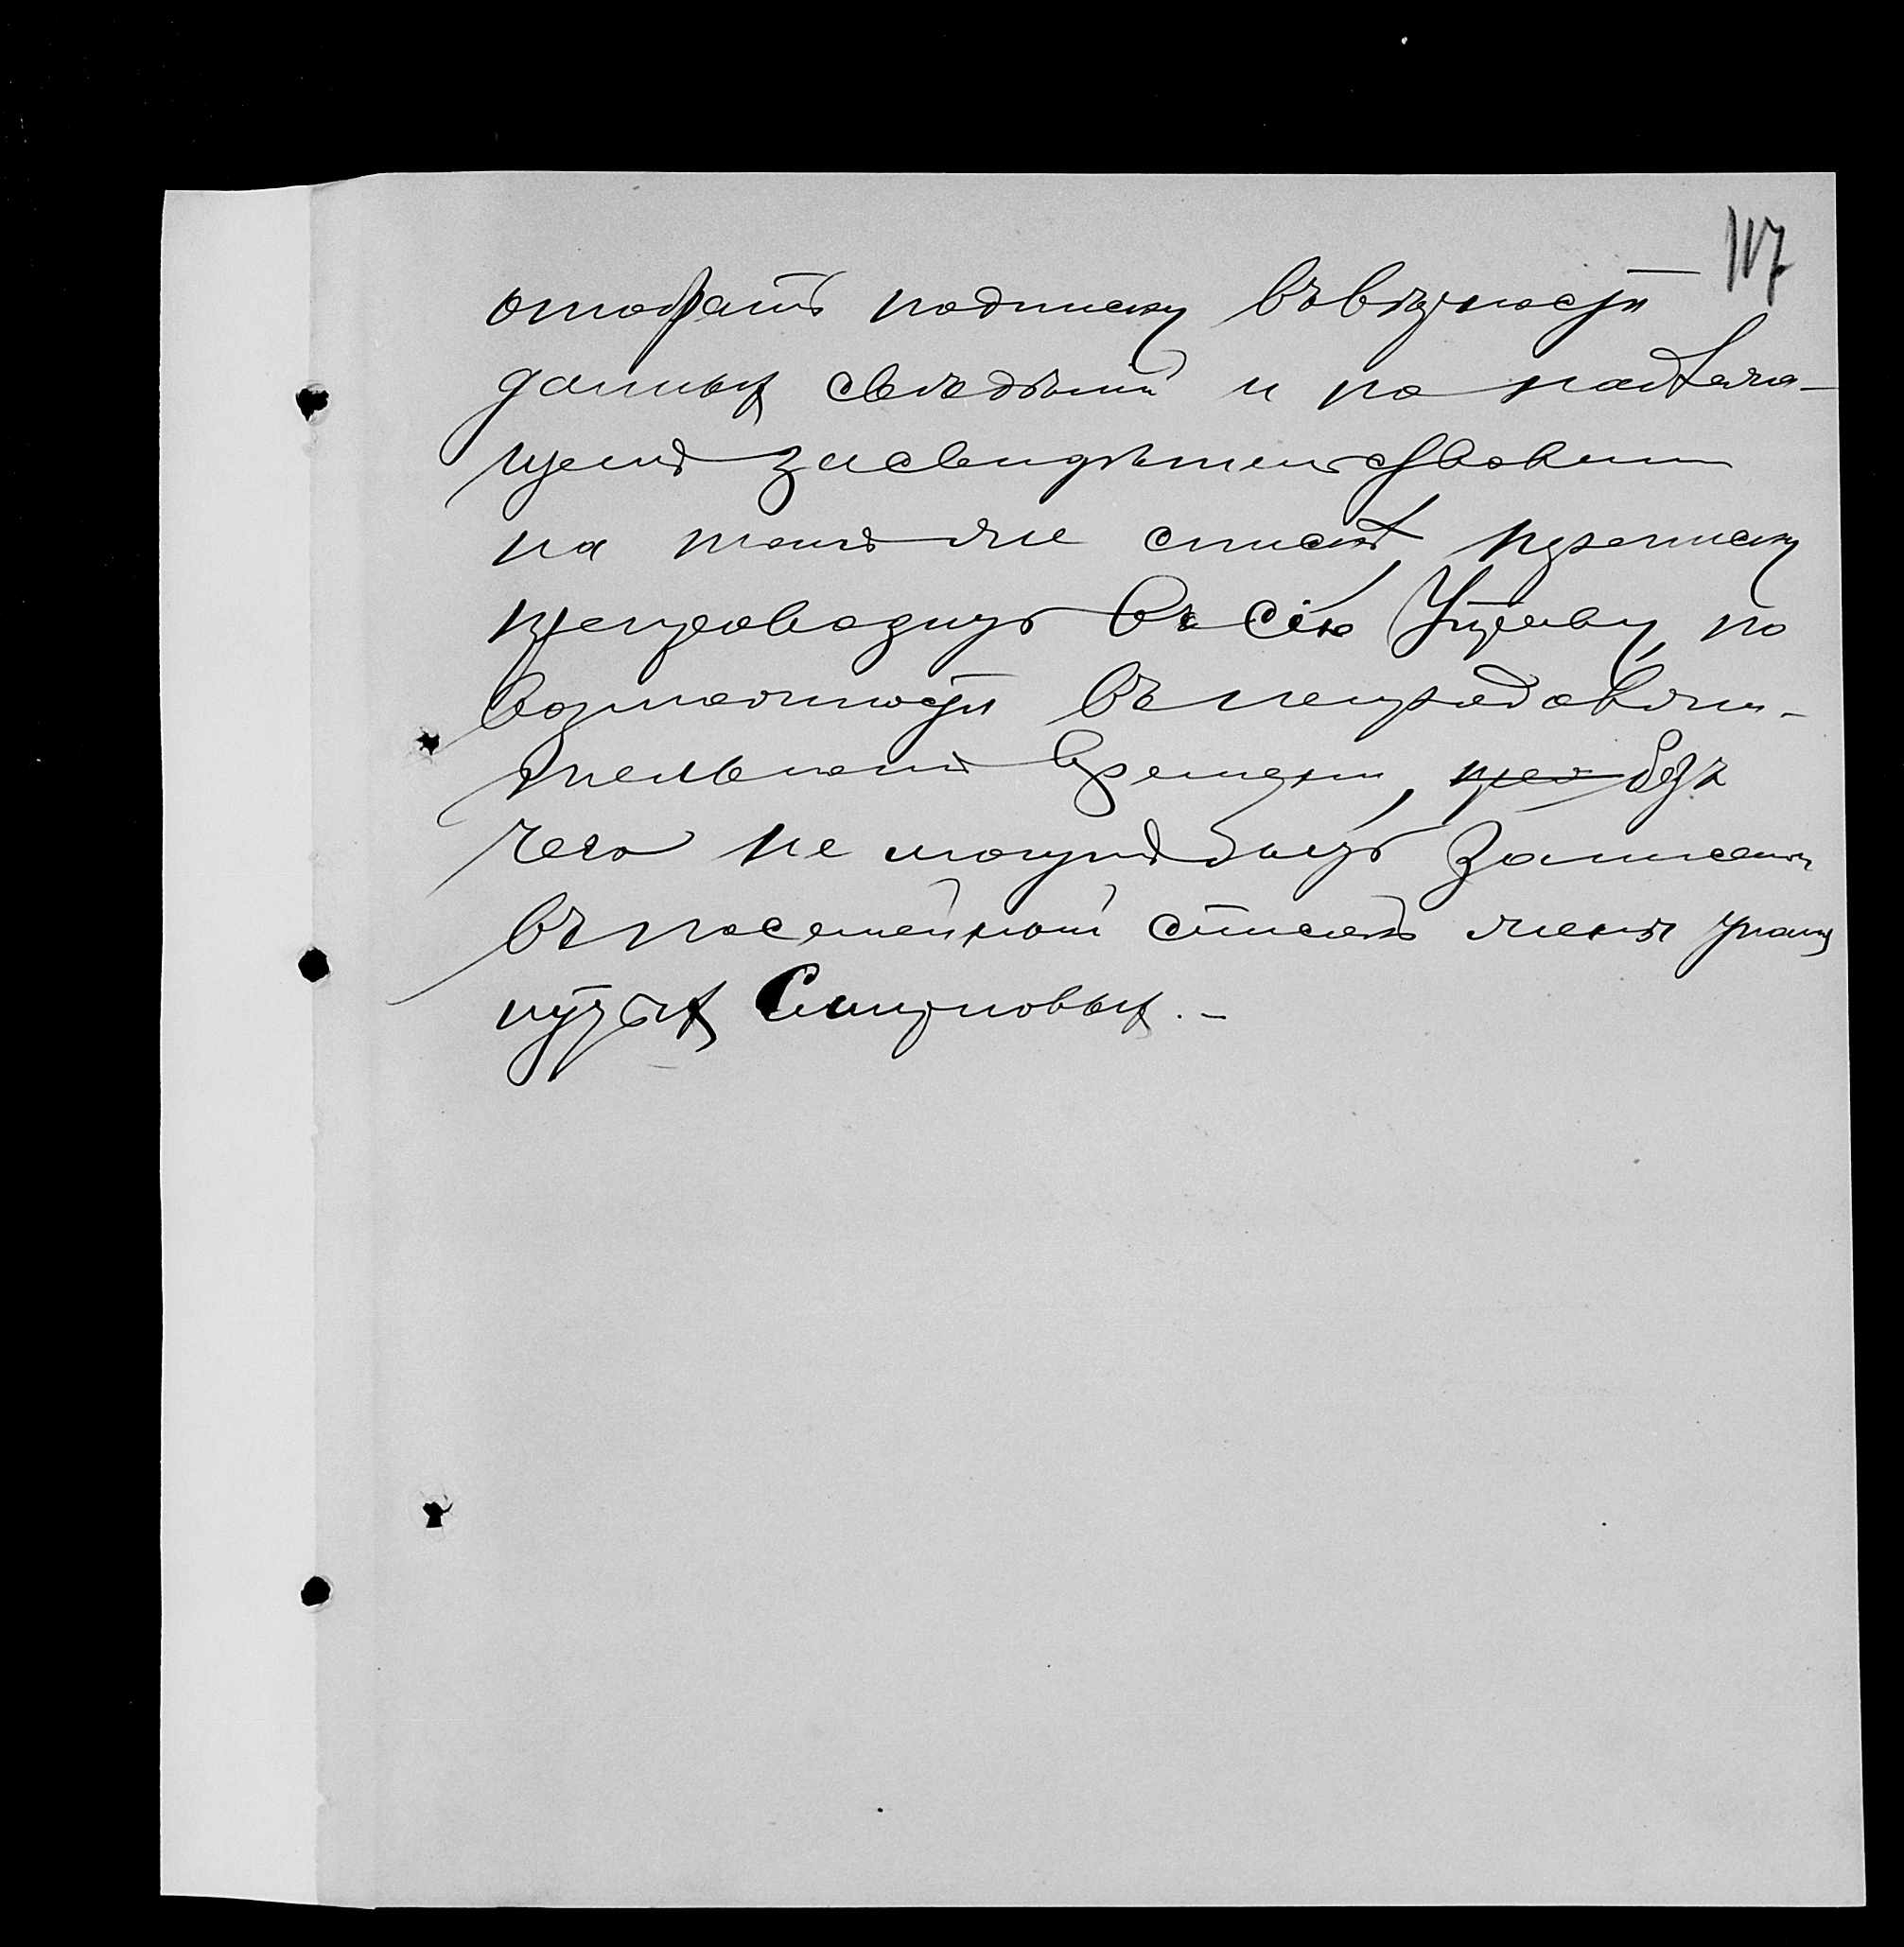 117
отобрать подписку въ вѣрности
данныхъ свѣдѣнiй и по надлежа-
щемъ засвидѣтельствованiи
на томъ же спискѣ, переписку
препроводить въ сiю Управу, по
возможности въ непродолжи-
тельномъ времени, без
чего не могутъ быть записаны
въ посемейный списокъ члены упомя
нутыхъ Смирновыхъ. -